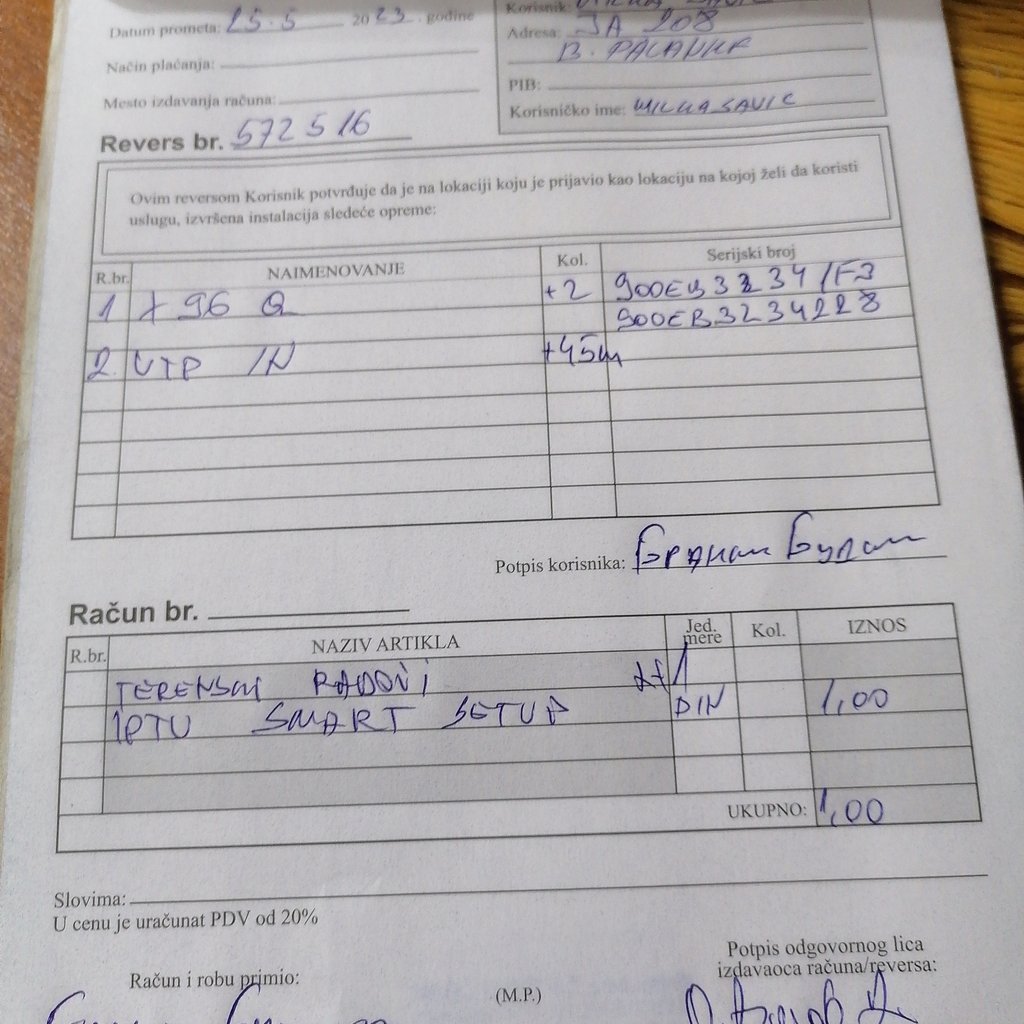 Korisnik:
Datum prometa: 25.5 20 23. godine
Adresa: JA 208
B. PALANKA
Način plaćanja:
PIB:
Mesto izdavanja računa:
Korisničko ime: MILKASAVIC
Revers br. 572516
Ovim reversom Korisnik potvrđuje da je na lokaciji koju je prijavio kao lokaciju na kojoj želi da koristi
uslugu, izvršena instalacija sledeće opreme:
R.br. NAIMENOVANJE Kol. Serijski broj
1 X 96 Q +2 900EB32341F3
900EB3234228
2. UTP IN +45m
Potpis korisnika:
Račun br.
R.br. NAZIV ARTIKLA Jed. mere Kol. IZNOS
TERENSKI RADOVI
IPTV SMART SETUP DIN 1,00
UKUPNO: 1,00
Slovima:
U cenu je uračunat PDV od 20%
Potpis odgovornog lica
izdavaoca računa/reversa:
Račun i robu primio:
(M.P.)